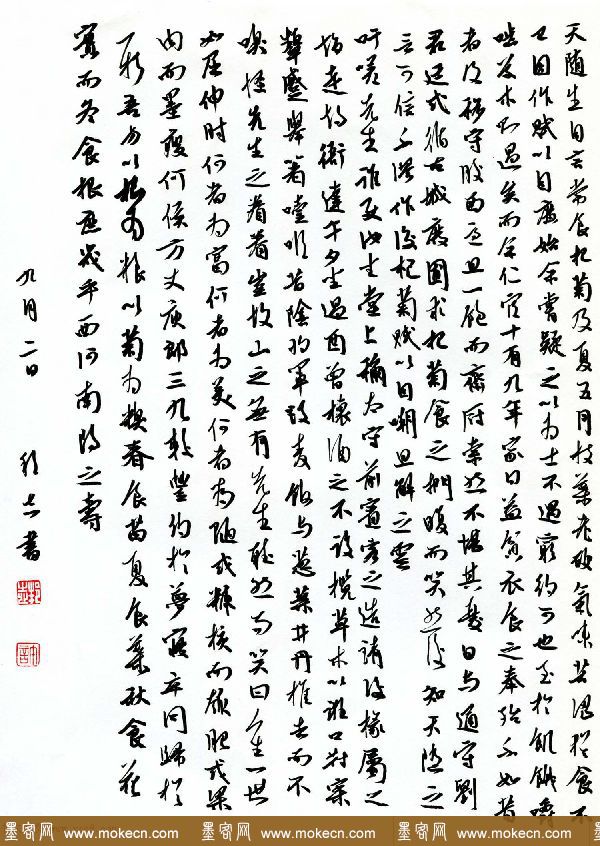 天随生自言常食杞菊及夏五月枝葉老硬氣味苦澀猶食不
已因作賦以自廣始余嘗疑之以为士不遇窮約可也至於飢餓嚼
啮草木則過矣而余仕宦十有九年家日益貧衣食之奉殆不如昔
者及移守膠西意且一飽而齋廚索然不堪其憂日与通守劉
君廷式循古城廢圃求杞菊食之捫腹而笑然後知天隨之
言可信不謬作後杞菊賦以自嘲且解之雲
吁嗟先生誰使汝坐堂上稱太守前賓客之造請後掾屬之
趨走朝衙達午夕坐過酉曾杯酒之不設攬草木以誑口對案
顰蹙舉箸噎嘔昔陰將軍設麥飯与葱葉井丹推去而不
嗅怪先生之眷眷豈故山之無有先生听然而笑曰人生一世
如屈伸肘何者为富何者为美何者为陋或糠核而瓠肥或粱
肉而墨瘦何侯方丈庾郎三九較豐約於夢寐卒同歸於
一朽吾方以杞为糧以菊为糗春食苗夏食葉秋食花
實而冬食根庶幾乎西河南陽之壽
九月二日
書
墨客网 www.mokecn.com 墨客网 www.mokecn.com 墨客网 www.mokecn.com